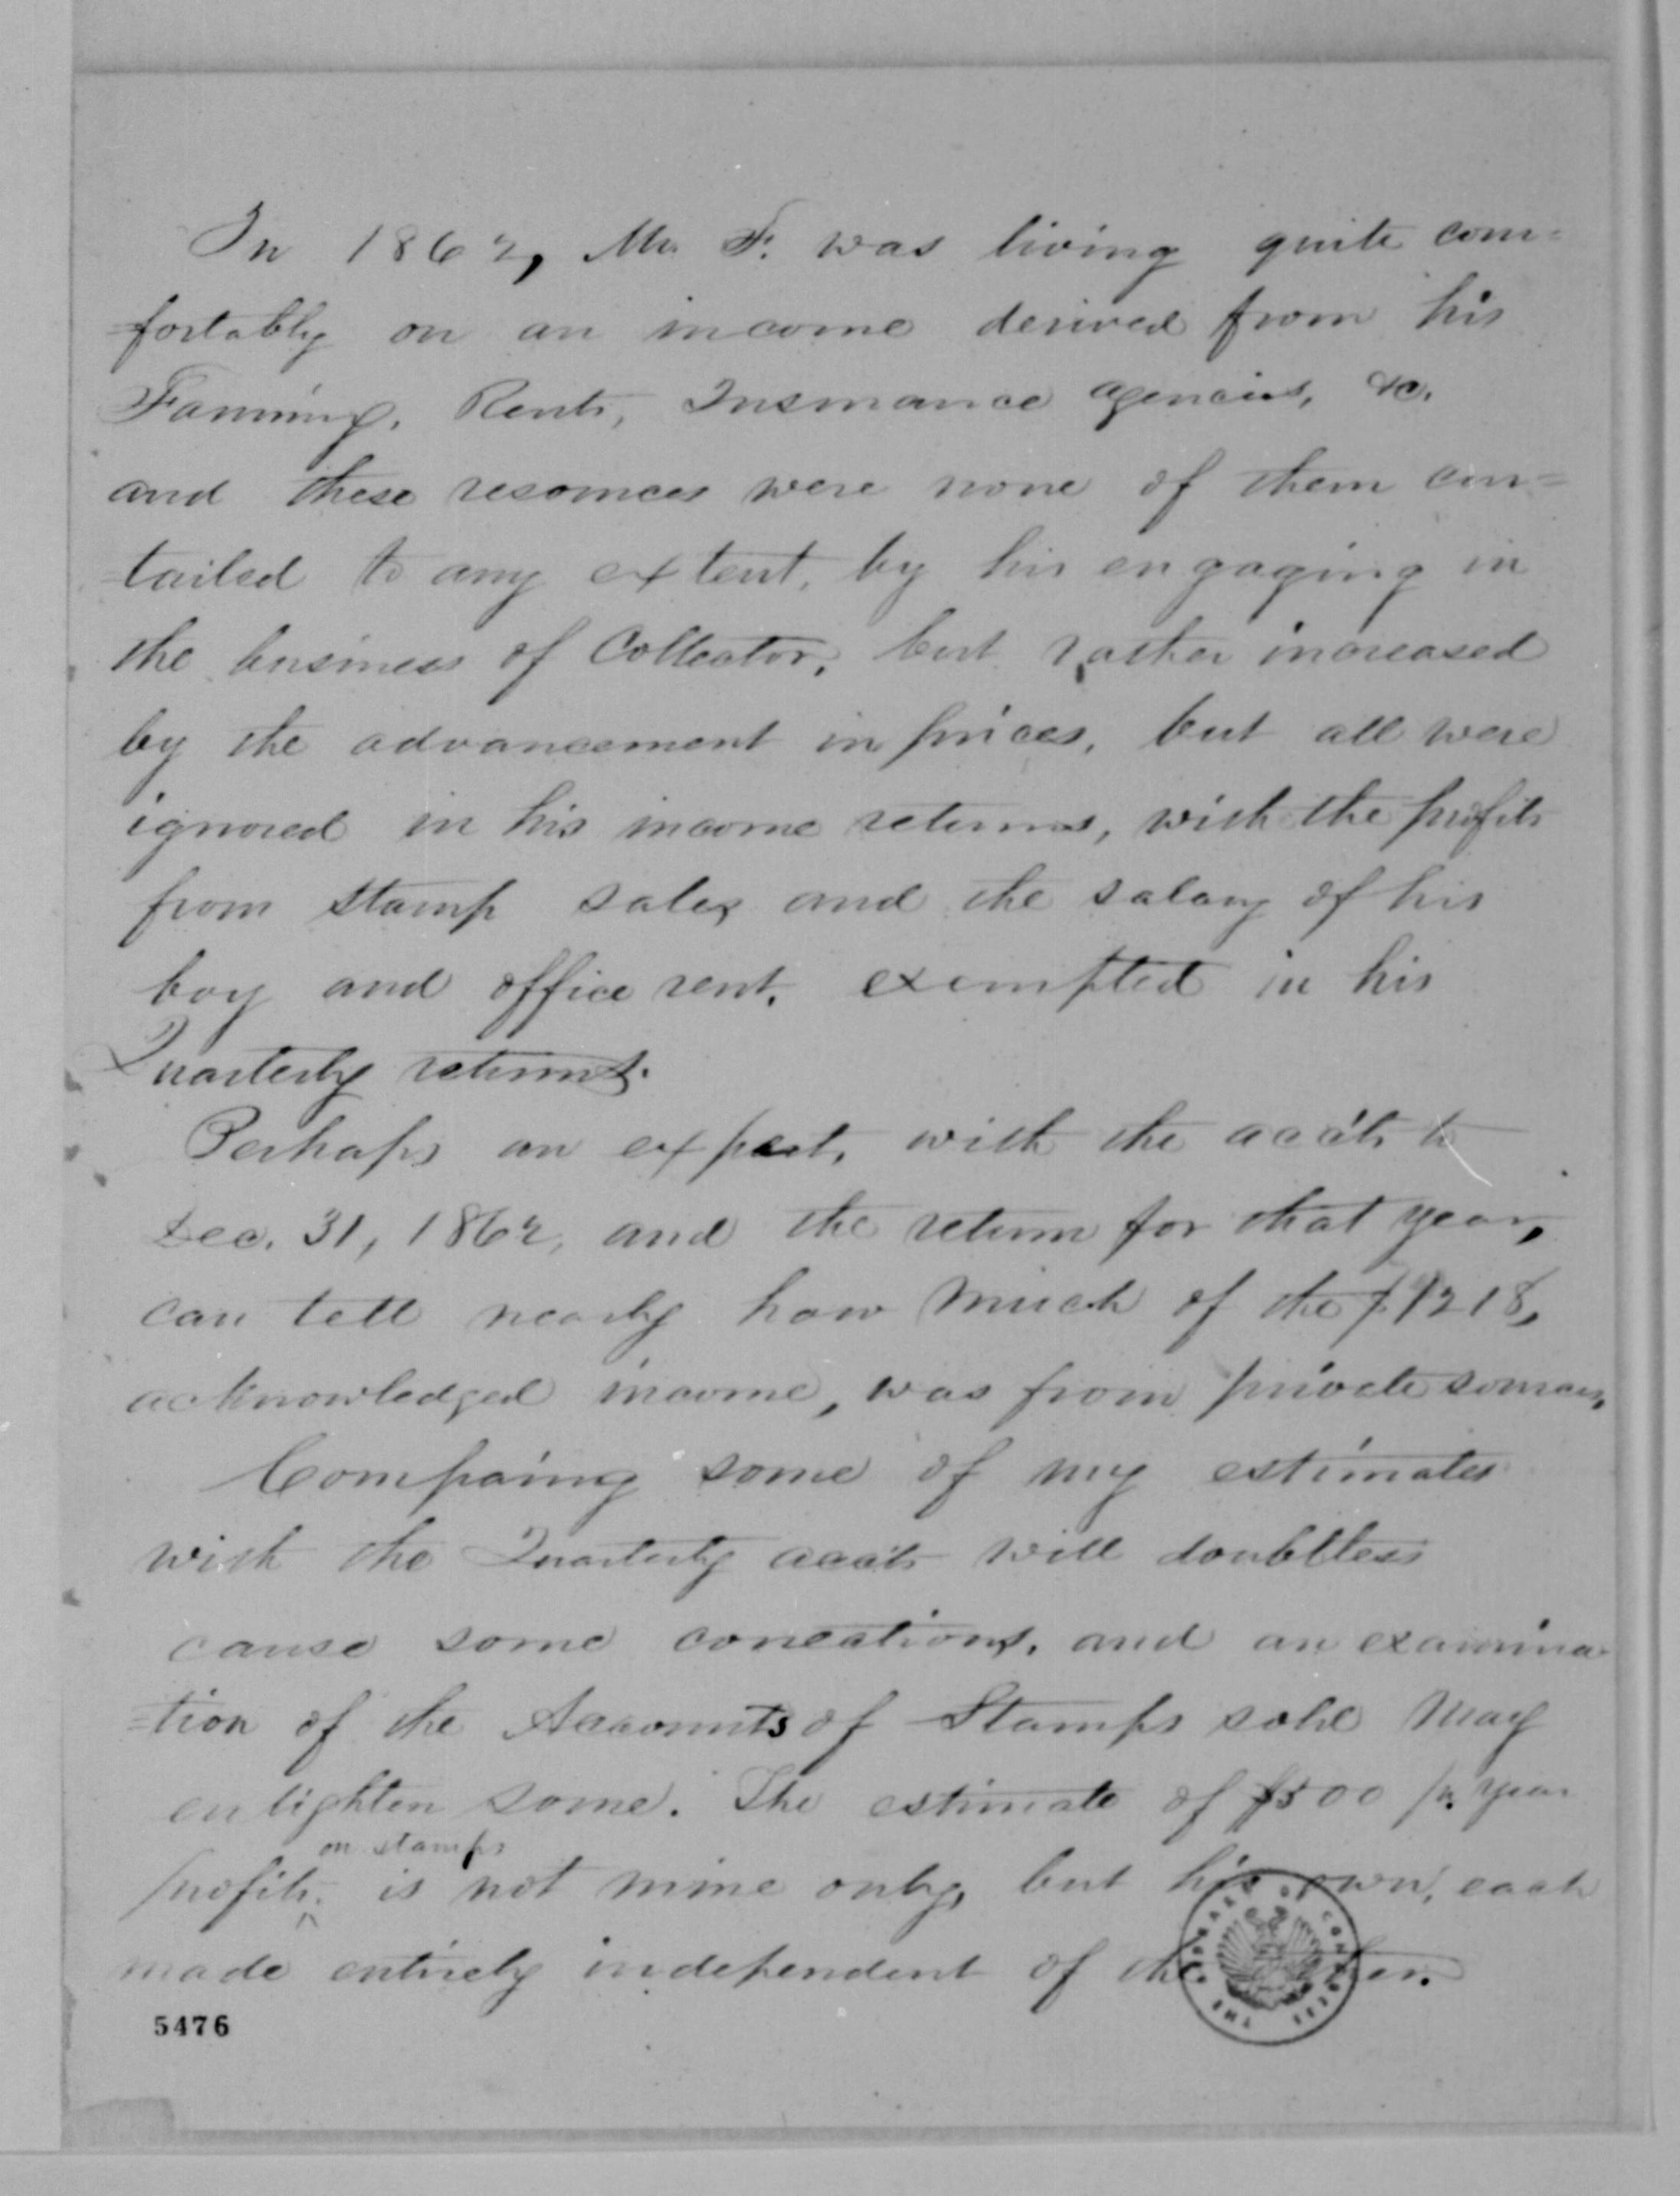 In 1862, Mr. F. was living quite com=
=fortably on an income derived from his
Farming, Rents, Insurance agencies, &c.
and these resources were none of them cur=
=tailed to any extent, by his engaging in
the business of Collector, but rather increased
by the advancement in prices, but all were
ignored in his income returns, with the profits
from stamp sales and the salary of his
boy and office rent, exempted in his
Quarterly returns.
Perhaps an expert, with the acc'ts to
Dec. 31, 1862, and the return for that year,
can tell nearly how much of the $1218,
acknowledged income, was from private sources.
Comparing some of my estimates
with the Quarterly acc'ts will doubtless
cause some corrections, and an examina
=tion of the Accounts of Stamps sold may
enlighten some. The estimate of $500 pr. year
on stamps
profits is not mine only, but his own, each
made entirely independent of the other.
THE LIBRARY OF CONGRESS
5476